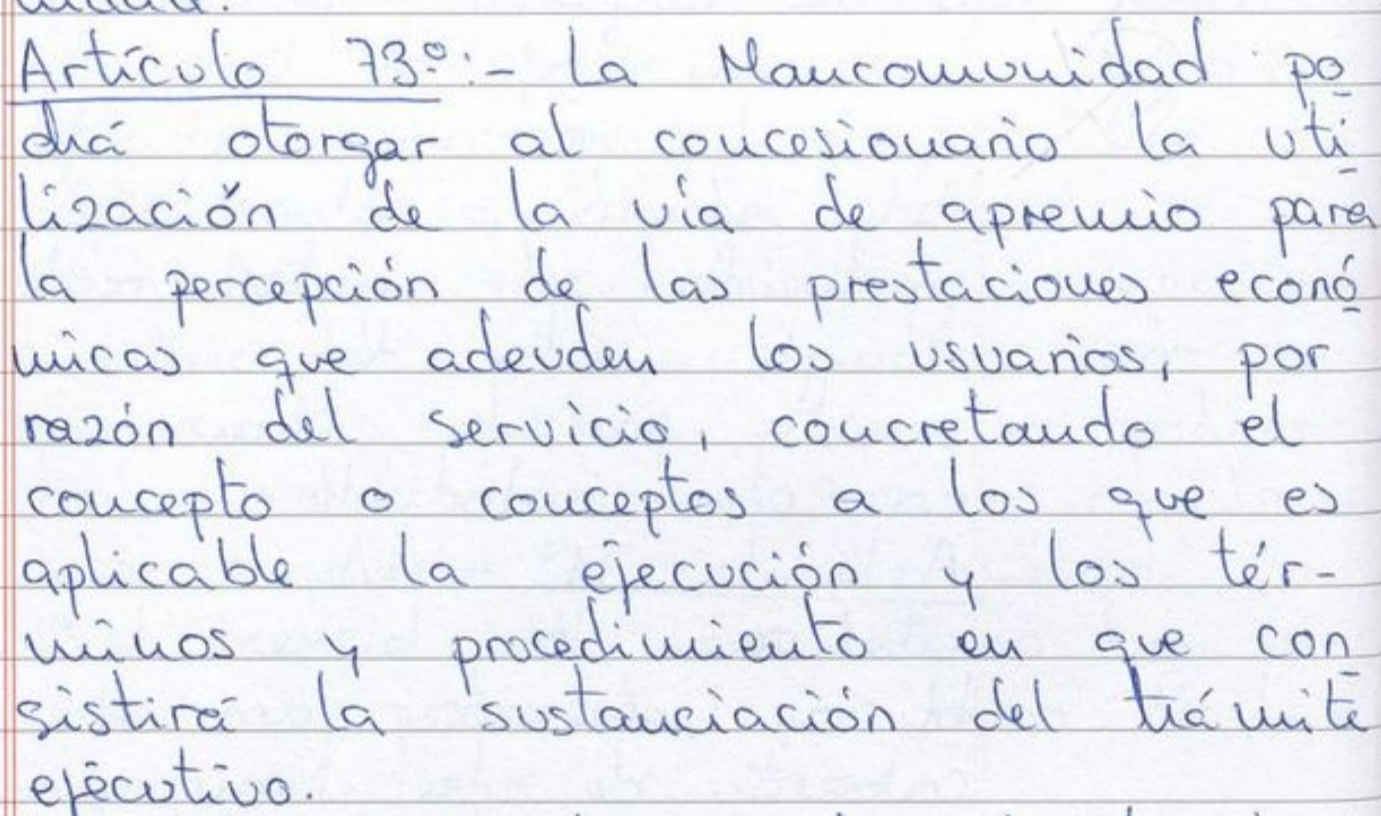 Artículo 73º:- La Mancomunidad po
drá otorgar al concesionario la uti
lización de la vía de apremio para
la percepción de las prestaciones econó
micas que adeuden los usuarios, por
razón del servicio, concretando el
concepto o conceptos a los que es
aplicable la ejecución y los tér-
minos y procedimiento en que con
sistirá la sustanciación del trámite
ejecutivo.